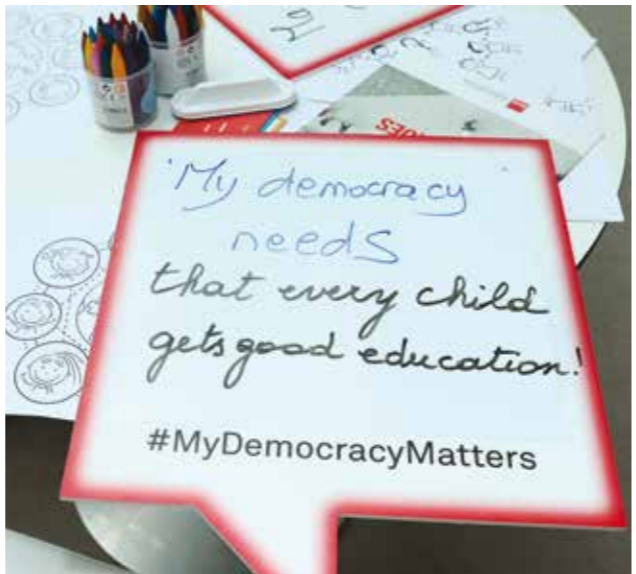 'My democracy
needs
that every child
gets good education!
#MyDemocracyMatters